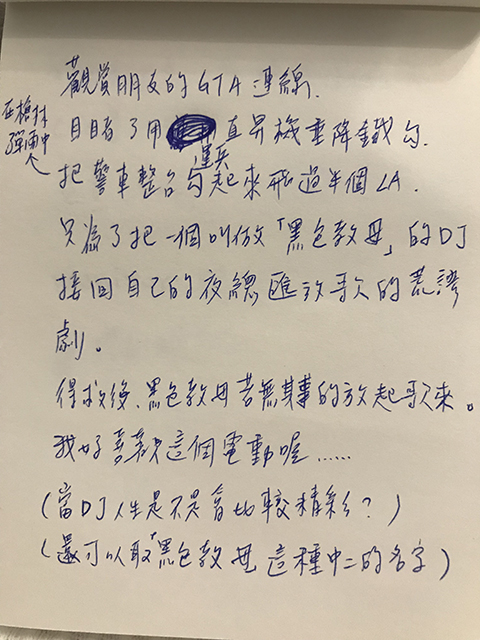 觀賞朋友的GTA連線.
目睹了用運兵直昇機垂降鐵勾.
在槍林彈雨中把警車整台勾起來飛過半個LA.
只為了把一個叫做「黑色教母」的DJ
接回自己的夜總匯放歌的荒謬
劇。
得救後.黑色教母若無其事的放起歌來。
我好喜歡這個電動喔......
(當DJ人生是不是會比較精彩?)
(還可以取「黑色教母」這種中二的名字)